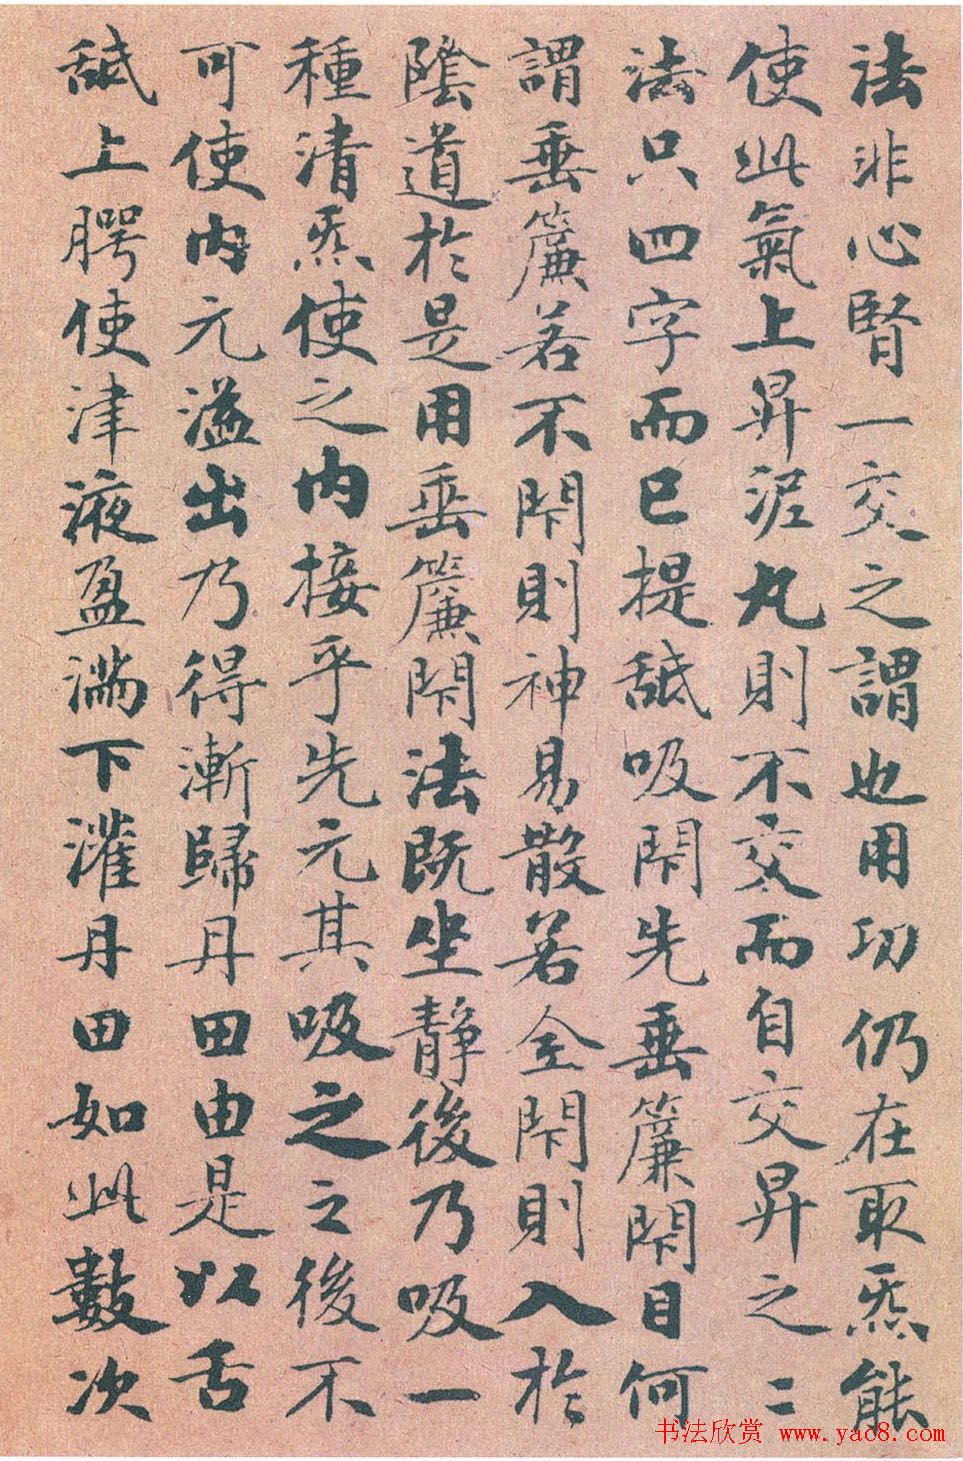 法非心腎一交之謂也用功仍在取炁能
使此氣上昇泥丸則不交而自交昇之二
法只四字而已提舐吸閇先垂簾閇目何
謂垂簾若不閇則神易散若全閇則入於
陰道於是用垂簾閇法既坐靜後乃吸一
種清炁使之内接乎先元其吸之之後不
可使内元溢出乃得漸歸丹田由是以舌
舐上腭使津液盈滿下灌丹田如此數次
书法欣赏 www.yac8.com